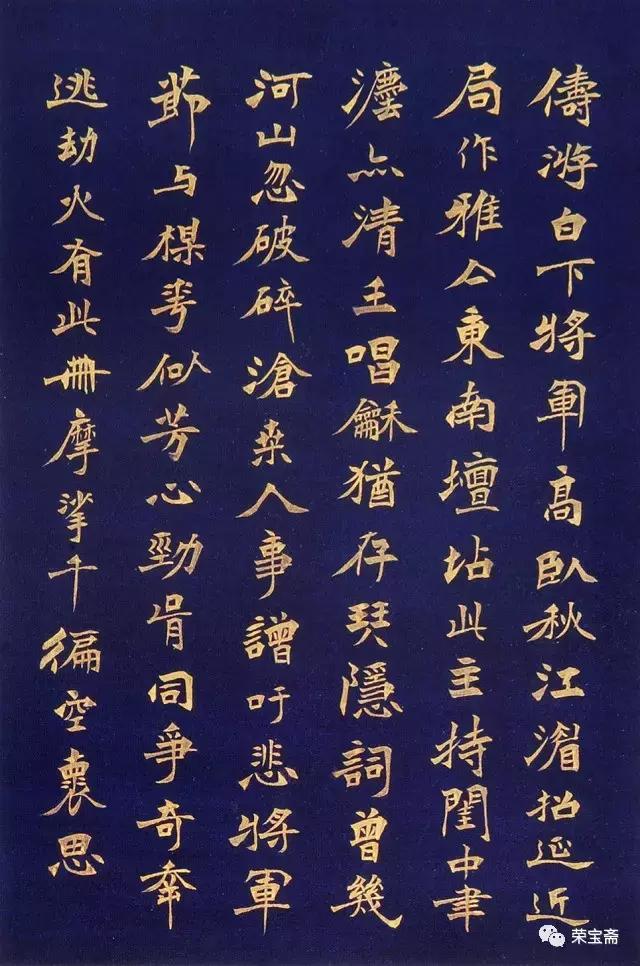 儔游白下將軍高臥秋江湄招延近
局作雅亼東南壇坫此主持閨中聿
灋亦清王唱龢猶存琴隱詞曾幾
河山忽破碎滄桒人事譄吁悲將軍
節与楳華似芳心勁肯同爭奇幸
逃劫火有此冊摩挲千徧空褱思
荣宝斋